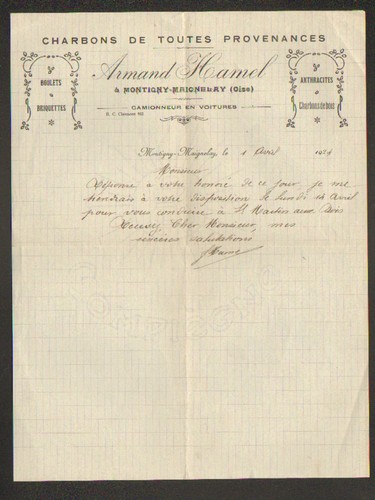 CHARBONS DE TOUTES PROVENANCES
BOULETS
&
BRIQUETTES
Armand Hamel
à MONTIGNY-MAIGNELAY (Oise)
CAMIONNEUR EN VOITURES
R. C. Clermont
ANTHRACITES
&
Charbons de bois
Montigny-Maignelay, le 1 Avril
Monsieur
Réponse à votre honoré de ce jour je me
tiendrais à votre disposition le lundi 14 Avril
pour vous conduire à St Martin aux Bois
Recevez, Cher Monsieur, mes
sincères salutations
Hamel